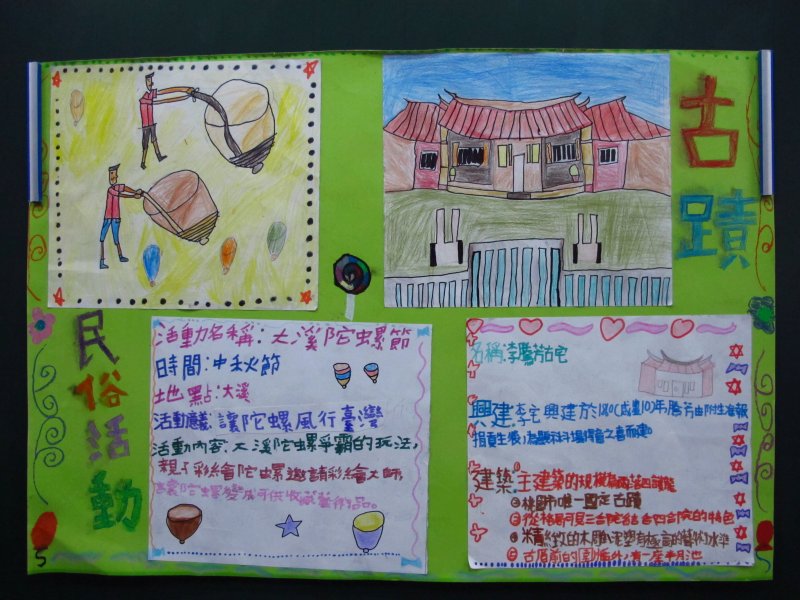 古蹟
民俗活動
5
活動名稱:大溪陀螺節
時間:中秋節
地點:大溪
活動意義:讓陀螺風行臺灣
活動內容:大溪陀螺爭霸的玩法,
親子彩繪陀螺邀請彩繪大師,
讓陀螺變成可供收藏藝術品。
名稱:李騰芳古宅
興建:李宅興建於1860(咸豐10)年,騰芳由附生准報
捐貢生後,為
建築:主建築的規模為兩落四護龍
桃園市唯一國定古蹟
從格局可見三合院結合四合院的特色
精緻的木雕泥塑有極高的藝術水準
古厝前的圍牆外,有一座半月池